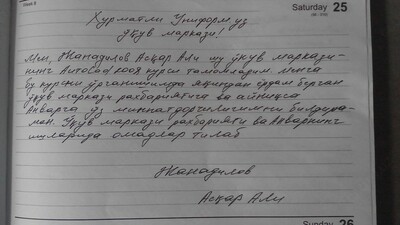 Saturday 25
Ҳурматли Униформ уз
Ўқув маркази!
Мен, Жанадилов Асқар Али шу ўқув маркази-
нинг AutoCad 2008 курси тамомладим. менга
бу курсни ўрганишимда яқиндан ёрдам берган
ўқув маркази рахбариятига ва айниқса
Акбарга ўз миннатдорчилигимни билдира-
ман. Ўқув маркази рахбарияти ва Акбарнинг
ишларида омадлар тилаб
Жанадилов
Асқар Али
Sunday 26